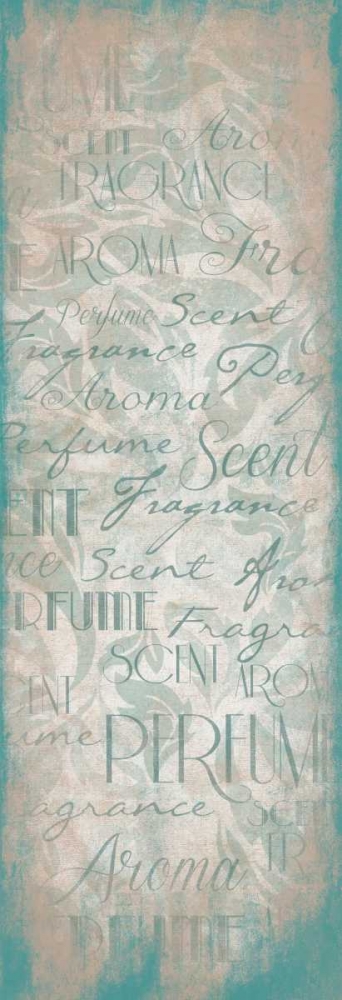 UME
SCENT Arom
FRAGRANCE
a
E AROMA Fra
Perfume Scent
Fragrance Per
Aroma
Perfume Scent
ENT Fragrance
nce Scent Arom
RFUME Fragra
SCENT AROM
ENT
ume PERFUM
agrance SCE
FR
Aroma
RFUME